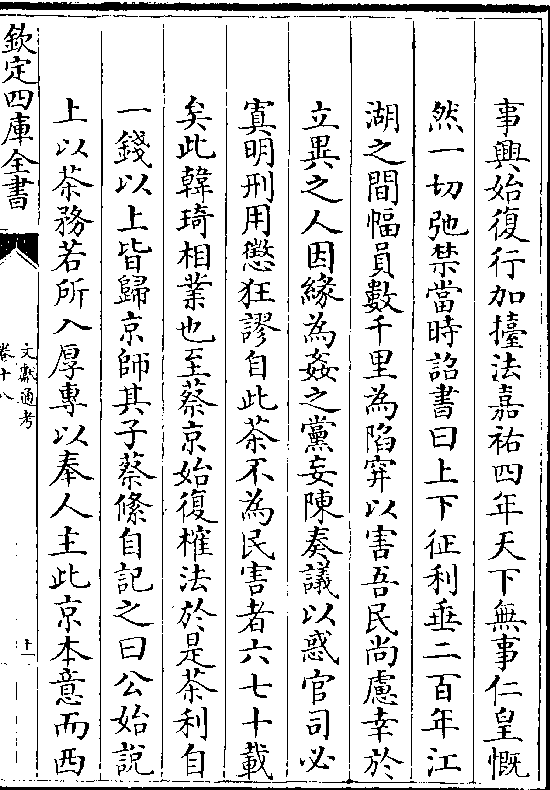 事興始復行加擡法嘉祐四年天下無事仁皇慨
然一切弛禁當時詔書曰上下征利垂二百年江
湖之間幅員數千里為陷穽以害吾民尚慮幸於
立異之人因緣為姦之黨妄陳奏議以惑官司必
寘明刑用懲狂謬自此茶不為民害者六七十載
矣此韓琦相業也至蔡京始復榷法於是茶利自
一錢以上皆歸京師其子蔡絛自記之曰公始說
上以茶務若所入厚專以奉人主此京本意而西
欽定四庫全書
文獻通考
卷十八
十一